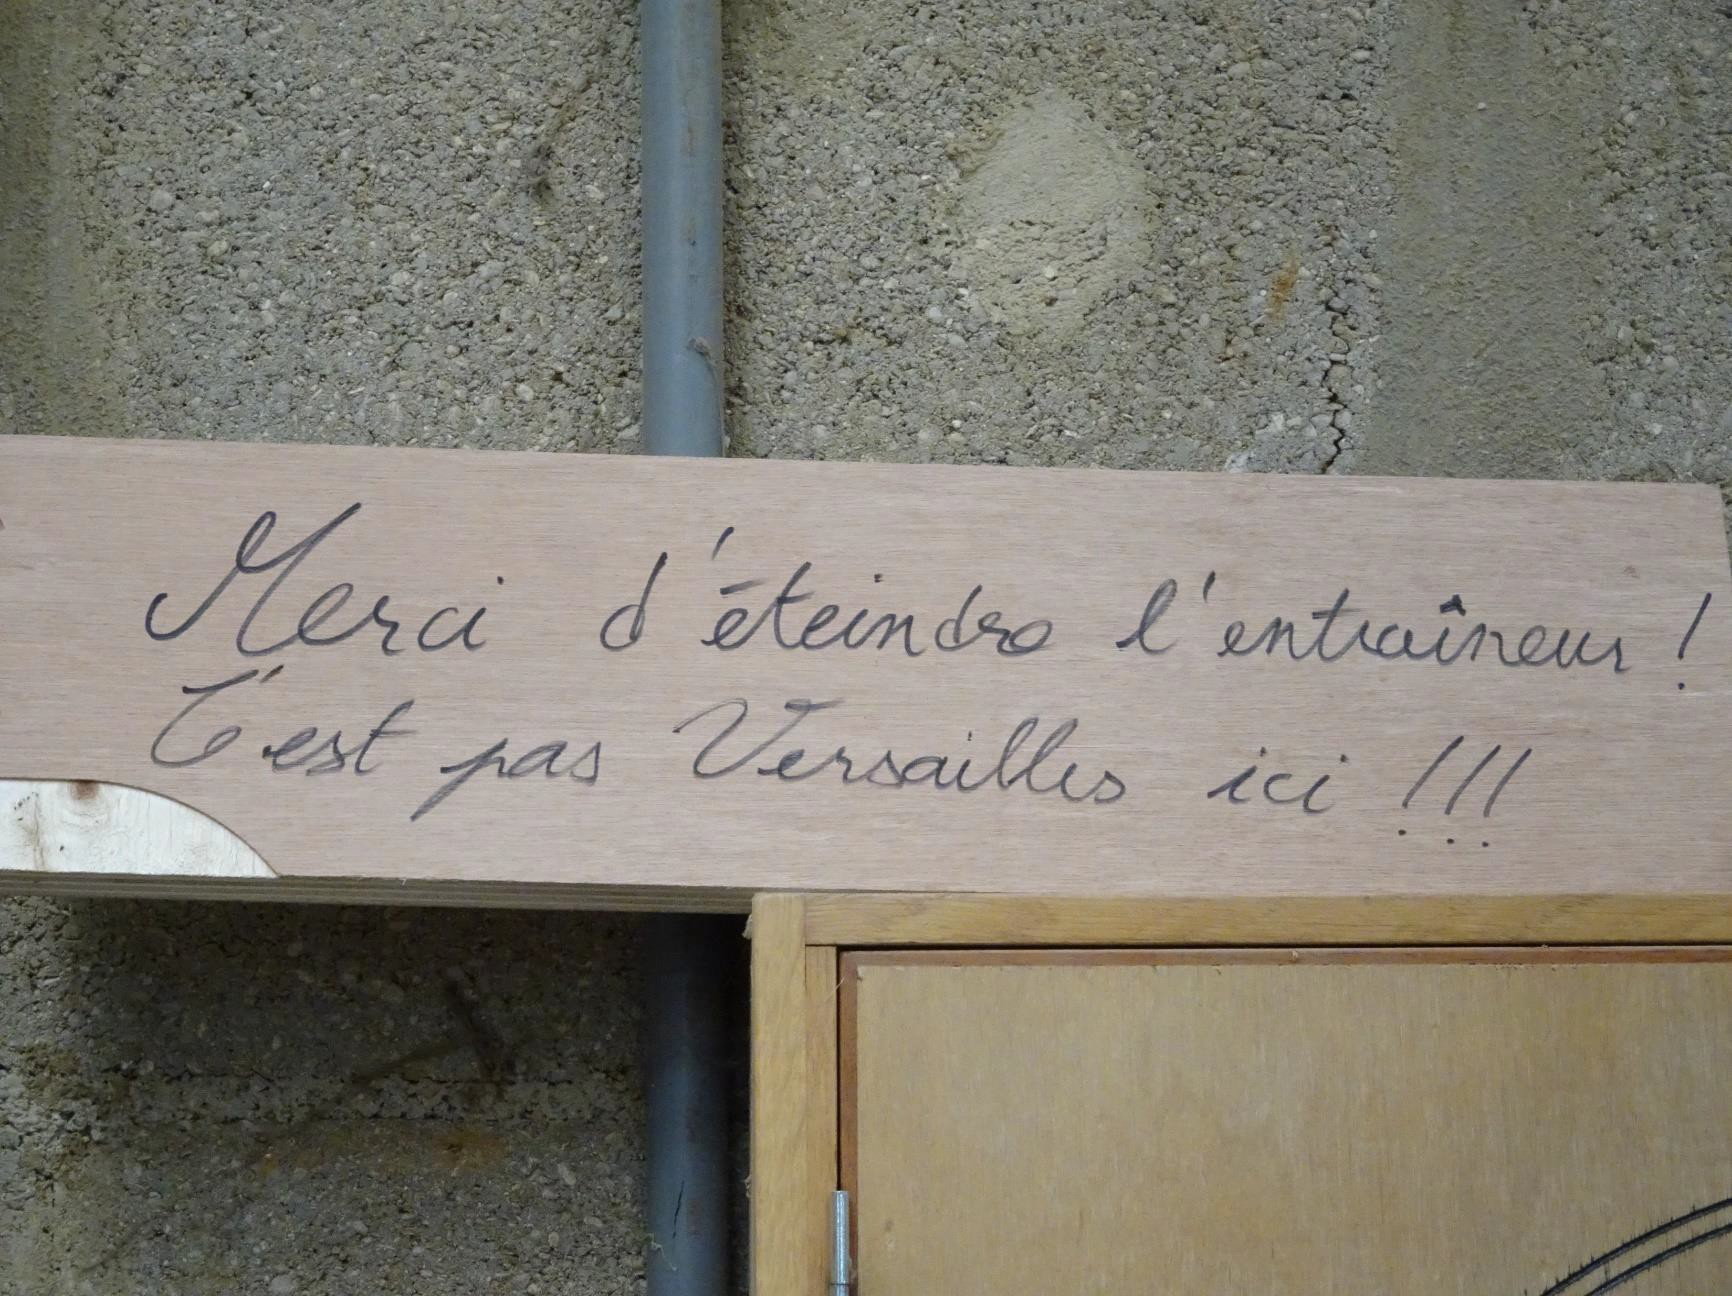 Merci d'éteindre l'entraîneur !
C'est pas Versailles ici !!!